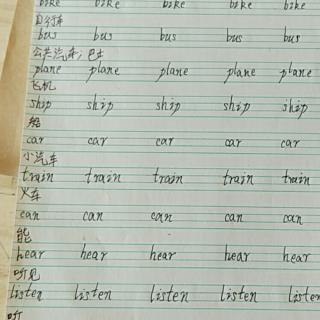 bike bike bike bike bike
自行车
bus bus bus bus bus
公共汽车,巴士
plane plane plane plane plane
飞机
ship ship ship ship ship
船
car car car car car
小汽车
train train train train train
火车
can can can can can
能
hear hear hear hear hear
听见
listen listen listen listen listen
听